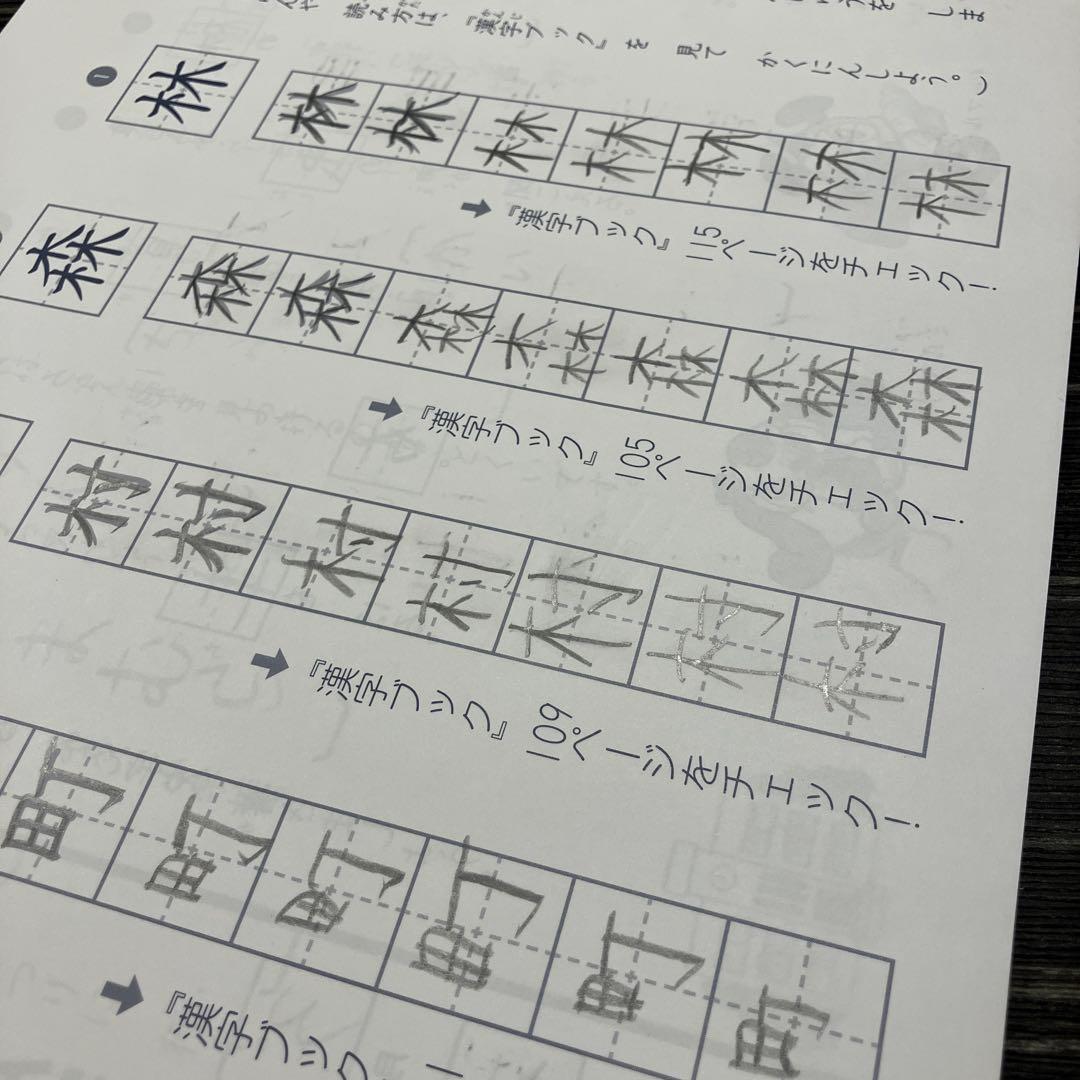 しま
読み方は、『漢字ブック』を 見て かくにんしよう。)
❶ 林 林 林 林 林 林 林 林
➡『漢字ブック』115ページをチェック!
森 森 森 森 森 森 森 森
➡『漢字ブック』105ページをチェック!
村 村 村 村 村 村 村
➡『漢字ブック』109ページをチェック!
町 町 町 町 町 町
➡『漢字ブック